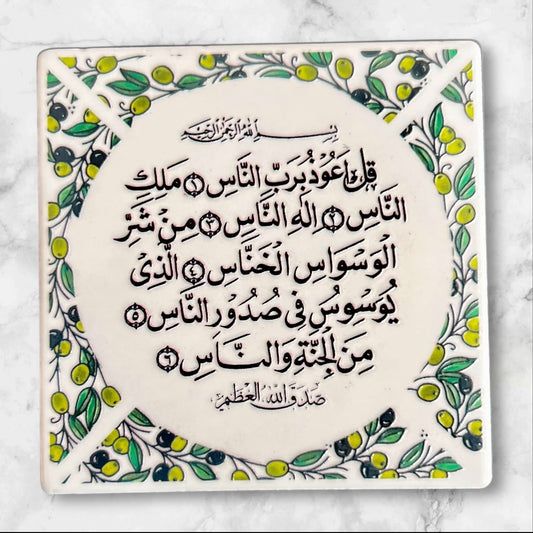 بِسْمِ اللَّهِ الرَّحْمَٰنِ الرَّحِيمِ
قُلْ أَعُوذُ بِرَبِّ النَّاسِ ١ مَلِكِ
النَّاسِ ٢ إِلَٰهِ النَّاسِ ٣ مِنْ شَرِّ
الْوَسْوَاسِ الْخَنَّاسِ ٤ الَّذِي
يُوَسْوِسُ فِي صُدُورِ النَّاسِ ٥
مِنَ الْجِنَّةِ وَالنَّاسِ ٦
صَدَقَ اللَّهُ الْعَظِيمُ